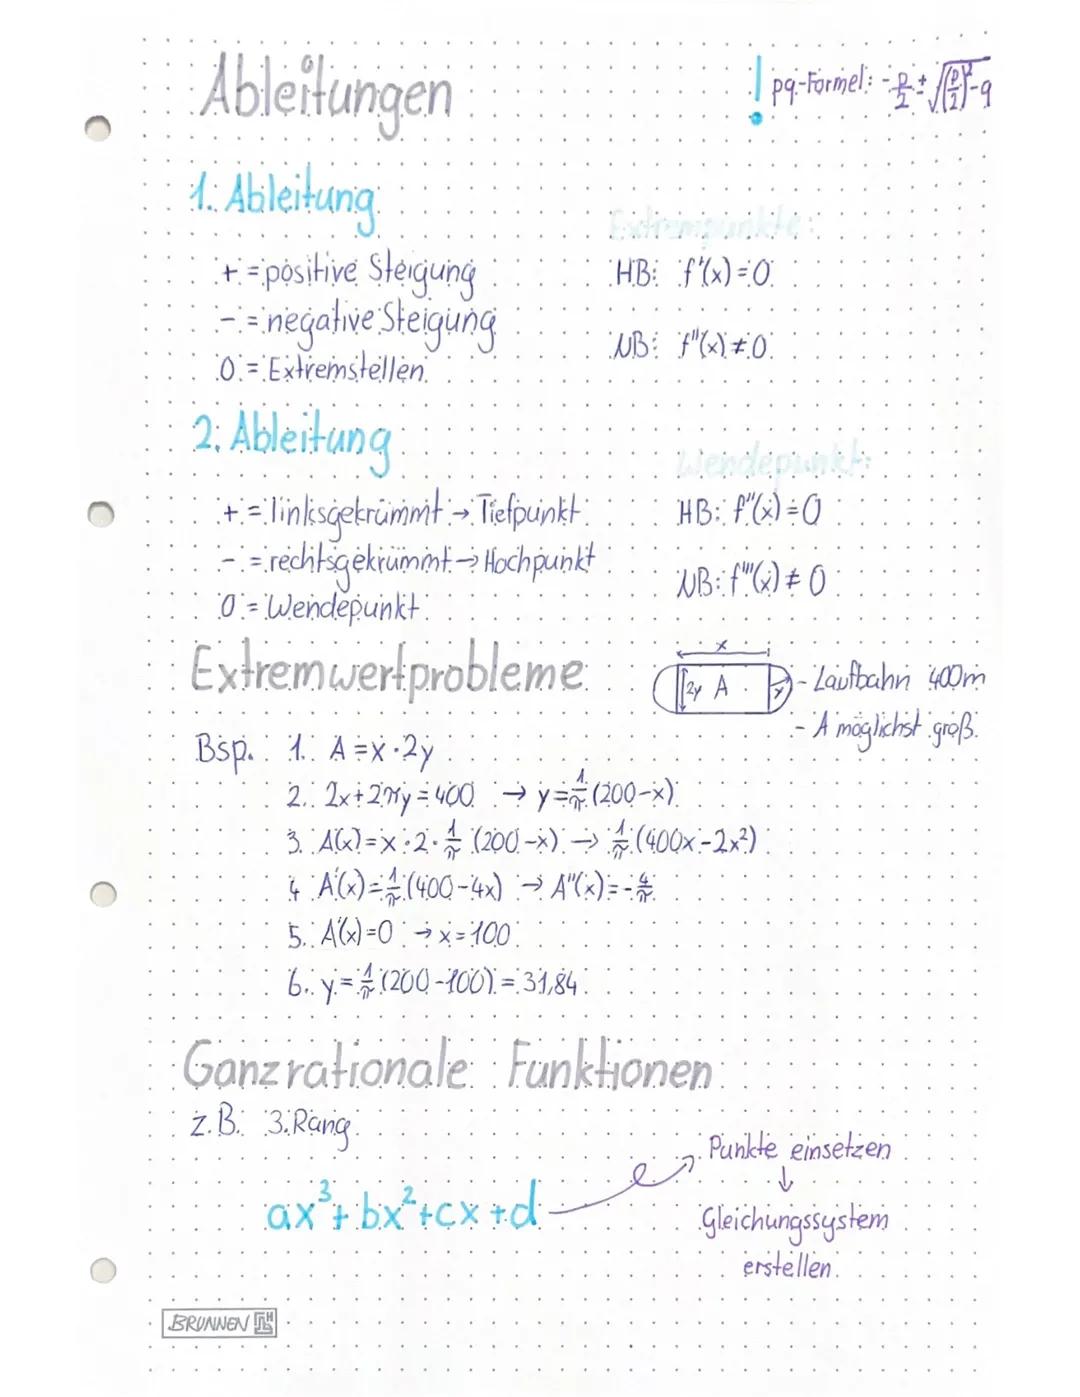 Ableitungen
! pq-Formel: -p/2 ± √((p/2)²-q
1. Ableitung
+ = positive Steigung
- = negative Steigung
0 = Extremstellen
Extrempunkte:
HB: f'(x)=0
NB: f''(x)≠0
2. Ableitung
+ = linksgekrümmt → Tiefpunkt
- = rechtsgekrümmt → Hochpunkt
0 = Wendepunkt
Wendepunkt:
HB: f''(x)=0
NB: f'''(x)≠0
Extremwertprobleme
x
2y A y
- Laufbahn 400m
- A möglichst groß
Bsp. 1. A=x·2y
2. 2x+2πy=400 → y=1/π(200-x)
3. A(x)=x·2·1/π(200-x) → 1/π(400x-2x²)
4 A'(x)=1/π(400-4x) → A''(x)=-4/π
5. A'(x)=0 → x=100
6. y=1/π(200-100)=31,84
Ganzrationale Funktionen
z.B. 3.Rang
ax³+bx²+cx+d
Punkte einsetzen
↓
Gleichungssystem
erstellen
BRUNNEN